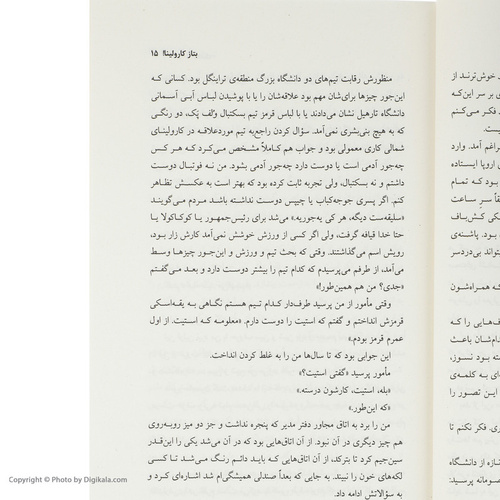 بتاز کارولینا! ۱۵
منظورش رقابت تیم‌های دو دانشگاه بزرگ منطقه‌ی تراینگل بود. کسانی که
این‌جور چیزها برای‌شان مهم بود علاقه‌شان را یا با پوشیدن لباس آبی آسمانی
دانشگاه تارهیل نشان می‌دادند یا با لباس قرمز تیم بسکتبال وُلف پَک، دو رنگی
که به هیچ بنی‌بشری نمی‌آمد. سؤال کردن راجع‌به تیم موردعلاقه در کارولینای
شمالی کاری معمولی بود و جواب هم کاملاً مشخص می‌کرد که هر کس
چه‌جور آدمی است یا دوست دارد چه‌جور آدمی بشود. من نه فوتبال دوست
داشتم و نه بسکتبال، ولی تجربه ثابت کرده بود که بهتر است به عکسش تظاهر
کنم. اگر پسری جوجه‌کباب یا چیپس دوست نداشته باشد مردم می‌گویند
«سلیقه‌ست دیگه، هر کی یه‌جوریه.» می‌شد برای رئیس‌جمهور یا کوکاکولا یا
حتا خدا قیافه گرفت، ولی اگر کسی از ورزش خوشش نمی‌آمد کارش زار بود،
رویش اسم می‌گذاشتند. وقتی که بحث تیم و ورزش و این‌جور چیزها وسط
می‌آمد، از طرفم می‌پرسیدم که کدام تیم را بیشتر دوست دارد و بعد می‌گفتم
«جدی؟ من هم همین‌طور!»
وقتی مأمور از من پرسید طرف‌دار کدام تیم هستم نگاهی به یقه‌اسکی
قرمزش انداختم و گفتم که استیت را دوست دارم. «معلومه که استیت. از اول
عمرم قرمز بودم.»
این جوابی بود که تا سال‌ها من را به غلط کردن انداخت.
مأمور پرسید «گفتی استیت؟»
«بله، استیت، کارشون درسته.»
«که این‌طور.»
من را برد به اتاق مجاور دفتر مدیر که پنجره نداشت و جز دو میز روبه‌روی
هم چیز دیگری در آن نبود. از آن اتاق‌هایی بود که در آن می‌شد یکی را این‌قدر
سین‌جیم کرد تا بترکد، از آن اتاق‌هایی که باید دائم رنگ می‌شد تا کسی
لکه‌های خون را نبیند. به جایی که بعداً صندلی همیشگی‌ام شد اشاره‌ای کرد و
به سؤالاتش ادامه داد.
Copyright © Photo by Digikala.com